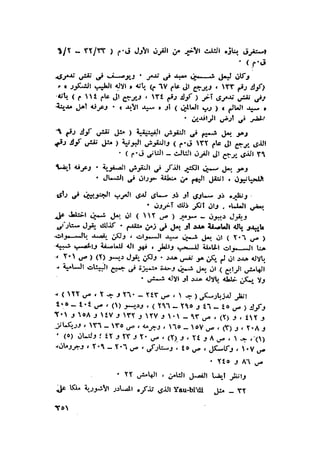 يستغرق بناؤه الثلث الأخير من القرن الأول ق٠م ( ٣٢/٣٣ – ٦/٢
ق٠م ) ٠
وكان لبعل شمـــين معبد في تدمر ٠ ويوصـــف في نقش تدمرى
(كوك رقم ١٣٣ ، ويرجع الى عام ٦٧ م) بأنه « الاله الطيب الشكور » ،
وفي نقش تدمرى آخر ( كوك رقم ١٣٤ ، يرجع الى عام ١١٤ م ) بأنه
« سيد العالم » ( رب العالمين ) أو « سيد الأبد » ٠ وعرفه أهل مدينة
الحضر في أرض الرافدين ٠
وهو بعل شميم في النقوش الفينيقية ( مثل نقش كوك رقم ٩
الذى يرجع الى عام ١٣٢ ق٠م ) والنقوش البونية ( مثل نقش كوك رقم
٣٩ الذى يرجع الى القرن الثالث – الثانى ق٠م ) ٠
وهو بعل سمين الكثير الذكر في النقوش الصفوية ٠ وعرفه أيضا
اللحيانيون ، انتقل اليهم من منطقة حوران في الشمال ٠
ونظيره ذو سماوى أو ذو سماى لدى العرب الجنوبيين في رأى
بعض العلماء ، وان أنكر ذلك آخرون ٠
ويقول ديسو – سومير ( ص ١١٢ ) ان بعل شمين اختلط على
مايبدو باله العاصفة هدد أو بعل في زمن متقدم ٠ كذلك يقول ستاركى
( ص ٢٠٦ ) ان بعل شمين سيد السموات ، ولكن يقصد بالسموات
هنا السموات الحاملة للسحب والمطر ، فهو اله للعاصفة والخصب شبيه
بالاله هدد ان لم يكن هو نفس هدد ٠ ولكن يقول ديسو (٢) ( ص ٢٠١ ،
الهامش الرابع ) ان بعل شمين وحدة متميزة في جميع البيئات السامية ،
ولا يمكن خلطه بالاله هدد أو الاله شمش ٠
انظر لدزبارسكى ( جـ ١ ، ص ٢٤٣ – ٢٦٠ و جـ ٢ ، ص ١٢٢ ) ،
وكوك ( ص ٤٥ – ٤٦ و ٢٩٥ – ٢٩٦ ) ، وديسو (١) ، ص ٤٠٤ – ٤٠٥
و ٤١٢ ، و (٢) ، ص ٩٣ – ١٠١ و ١٢٧ و ١٣٢ و ١٤٧ و ١٥٨ و ٢٠١
و ٢٠٨ ، و (٣) ، ص ١٥٧ – ١٦٥ ، وجرمه ، ص ١٣٥ – ١٣٦ ، وريكمانز
(١) ، جـ ١ ، ص ٨ و ٢٤ ، و (٢) ، ص ٢٠ و ٢٣ و ٤٢ ؛ ولتمان (٥)
ص ١٠٧ ، وكاسكل ، ص ٤٥ ، وستاركى ، ص ٢٠٦ – ٢٠٩ ، وجرومان،
ص ٨٦ و ٢٤٥ ٠
وانظر أيضا الفصل الثامن ، الهامش ٢٢ ٠
٣٢ – مثل Yau-bi'di الذى تذكره المصادر الأشورية ملكا على
٣٥١